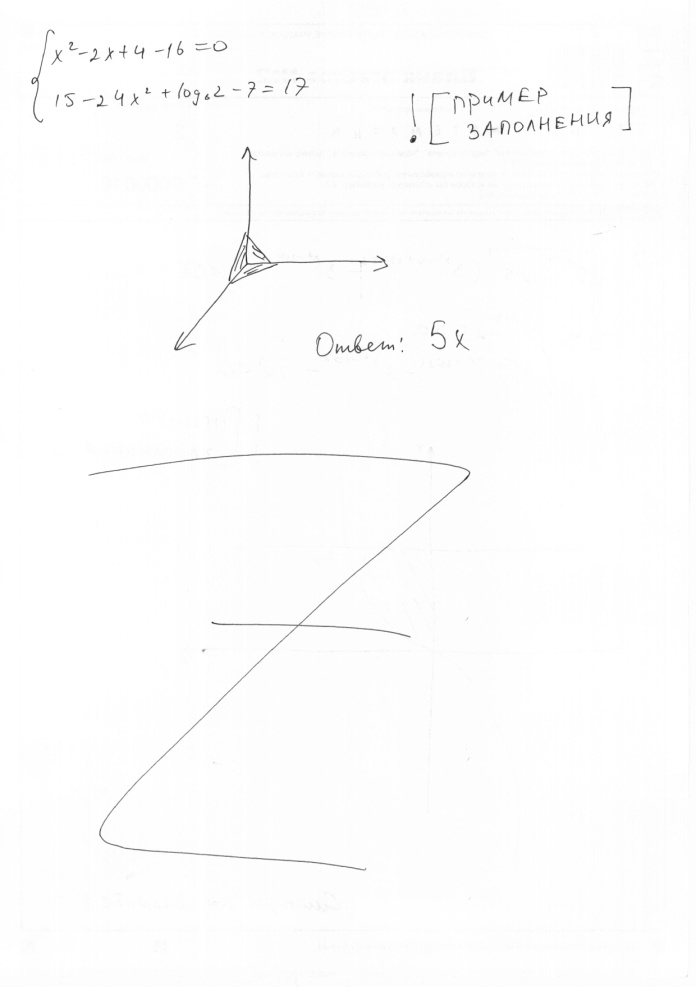 x²-2x+4-16=0
15-24x²+log₆2-7=17
! [ПРИМЕР
ЗАПОЛНЕНИЯ]
Ответ: 5x
Z